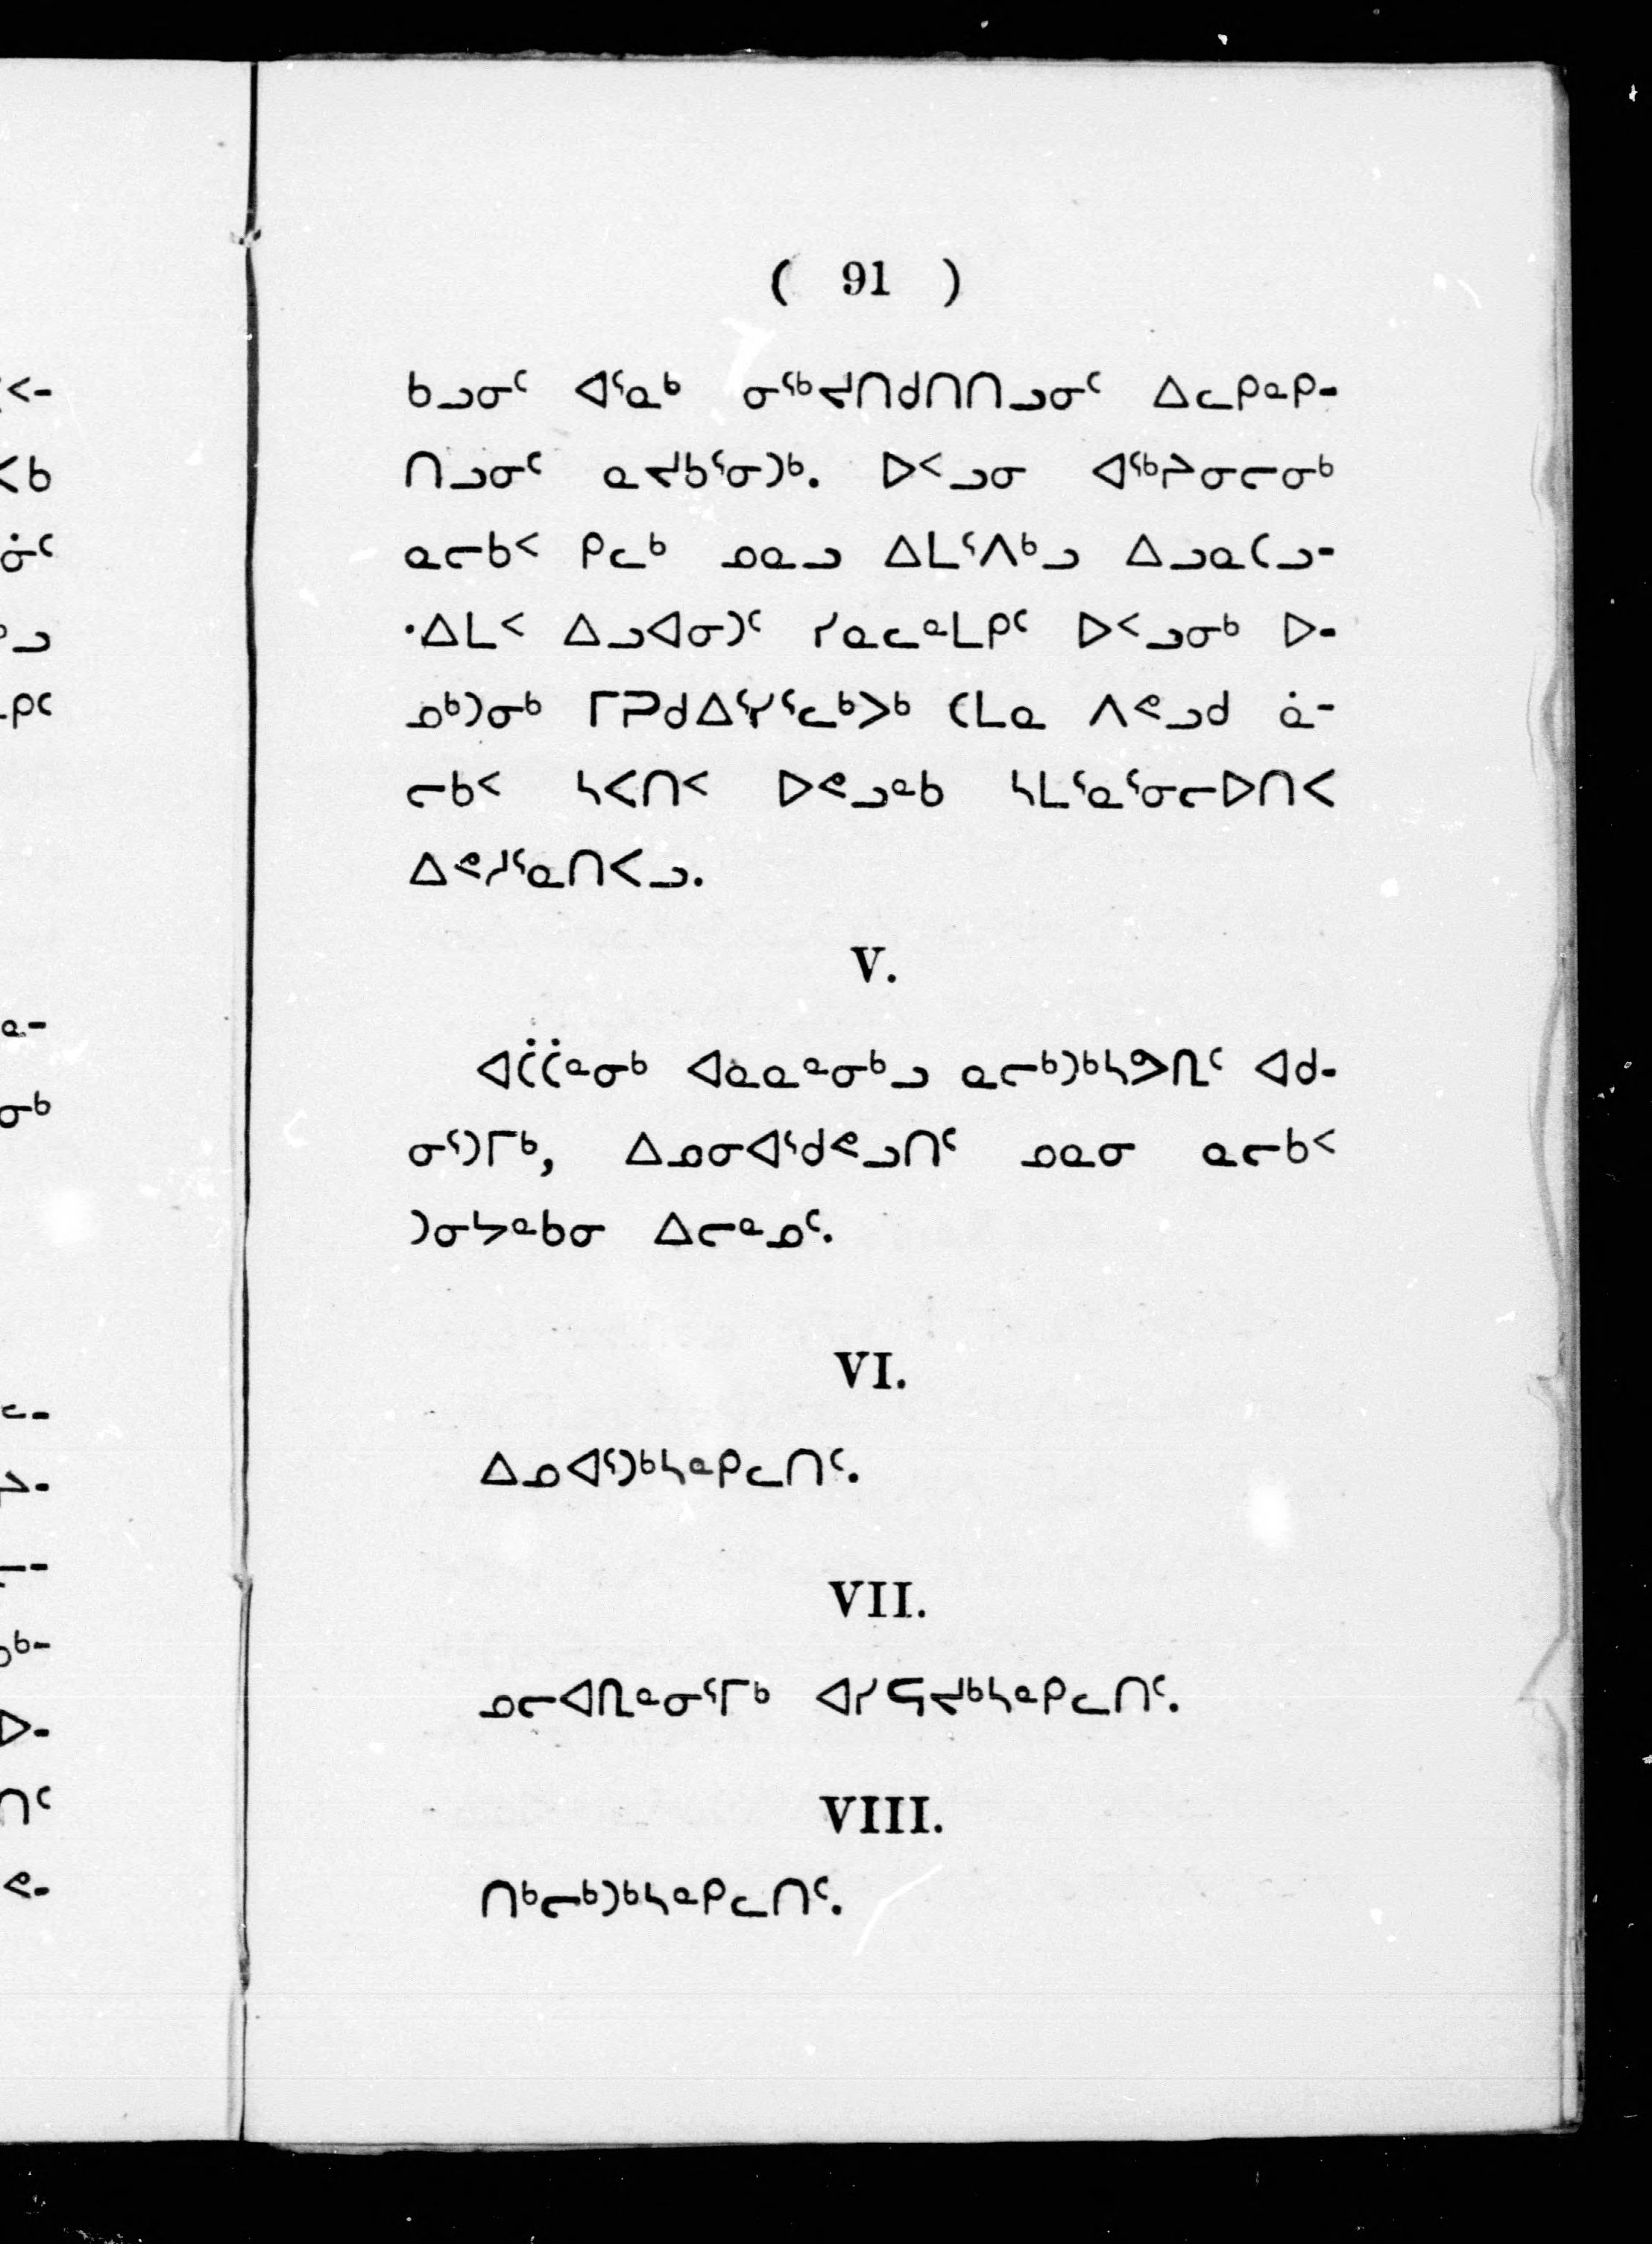 ( 91 )
ᑲᓗᓂᑦ ᐊᕐᓇᒃ ᓂᖅᔪᑎᑯᑎᑎᓗᓂᑦ ᐃᓚᑭᓐᑭ-
ᑎᓗᓂᑦ ᓇᔪᑲᕐᓂᑐᒃ. ᐅᑉᓗᓂ ᐊᖅᔨᓂᓕᓂᒃ
ᓇᓕᑲᑉ ᑭᓚᒃ ᓄᓇᓗ ᐃᒪᕐᐱᒃᓗ ᐃᓗᓇᑕᓗ-
ᐧᐃᒪᑉ ᐃᓗᐊᓂᑐᑦ ᓯᓇᓚᓐᒪᑭᑦ ᐅᑉᓗᓂᒃ ᐅ-
ᓄᒃᑐᓂᒃ ᒥᕈᑯᐃᕐᓯᕐᓚᒃᐳᒃ ᑕᒪᓇ ᐱᕙᓗᑯ ᓈ-
ᓕᑲᑉ ᓴᐸᑎᑉ ᐅᕙᓗᓐᑲ ᓴᒪᕐᓇᕐᓂᓕᐅᑎᐸ
ᐃᕝᓱᕐᓇᑎᐸᓗ.
V.
ᐊᑖᑖᓐᓂᒃ ᐊᓈᓇᓐᓂᒃᓗ ᓇᓕᒃᑐᒃᓴᕗᑎᑦ ᐊᑯ-
ᓂᕐᑐᒥᒃ, ᐃᓄᓂᐊᕐᑯᕝᓗᑎᑦ ᓄᓇᓂ ᓇᓕᑲᑉ
ᑐᓂᔭᓐᑲᓂ ᐃᓕᓐᓄᑦ.
VI.
ᐃᓄᐊᕐᑐᒃᓴᓐᑭᓚᑎᑦ.
VII.
ᓄᓕᐊᕆᓐᓂᕐᒥᒃ ᐊᓯᕋᔪᒃᓴᓐᑭᓚᑎᑦ.
VIII.
ᑎᒃᓕᒃᑐᒃᓴᓐᑭᓚᑎᑦ.